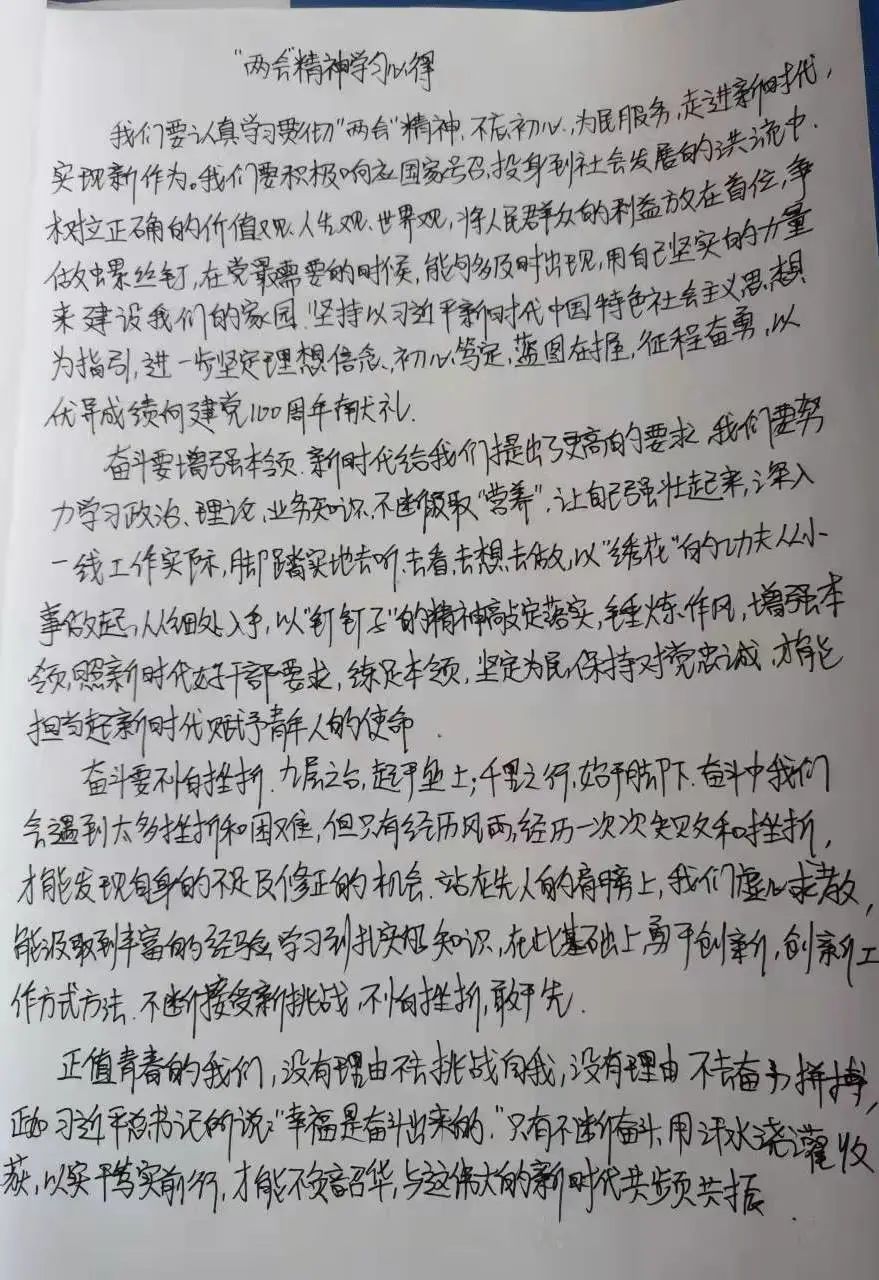 “两会”精神学习心得
我们要认真学习贯彻“两会”精神、不忘初心、为民服务,走进新时代,
实现新作为。我们要积极响应国家号召,投身到社会发展的洪流中.
树立正确的价值观、人生观、世界观,将人民群众的利益放在首位,争
做螺丝钉,在党最需要的时候,能够及时出现,用自己坚实的力量
来建设我们的家园.坚持以习近平新时代中国特色社会主义思想
为指引,进一步坚定理想信念、初心笃定,蓝图在握,征程奋勇,以
优异成绩向建党100周年献礼.
奋斗要增强本领.新时代给我们提出了更高的要求,我们要努
力学习政治、理论、业务知识、不断汲取“营养”,让自己强壮起来,深入
一线工作实际,脚踏实地去听、去看、去想、去做,以“绣花”的功夫从小
事做起,从细处入手,以“钉钉子”的精神敲定落实,锤炼作风,增强本
领,照新时代好干部要求,练足本领,坚定为民,保持对党忠诚,才能
担当起新时代赋予青年人的使命.
奋斗要不怕挫折.九层之台,起于垒土;千里之行,始于脚下.奋斗中我们
会遇到太多挫折和困难,但只有经历风雨,经历一次次失败和挫折,
才能发现自身的不足及修正的机会.站在先人的肩膀上,我们虚心求教,
能汲取到丰富的经验,学习到扎实的知识,在此基础上勇于创新,创新工
作方式方法.不断接受新挑战,不怕挫折,敢于先.
正值青春的我们,没有理由不去挑战自我,没有理由不去奋力拼搏,
正如习近平总书记所说:“幸福是奋斗出来的.”只有不断奋斗、用汗水浇灌收
获,以实干笃实前行,才能不负韶华,与这伟大的新时代共频共振.